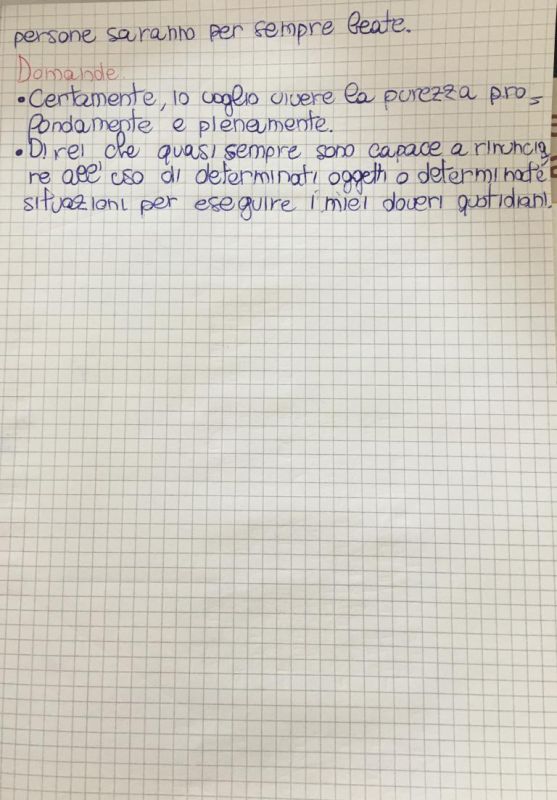 persone saranno per sempre beate.
Domande
• Certamente, io voglio vivere la purezza pro=
fondamente e pienamente.
• Direi che quasi sempre sono capace a rinuncia
re all'uso di determinati oggetti o determinate
situazioni per eseguire i miei doveri quotidiani.